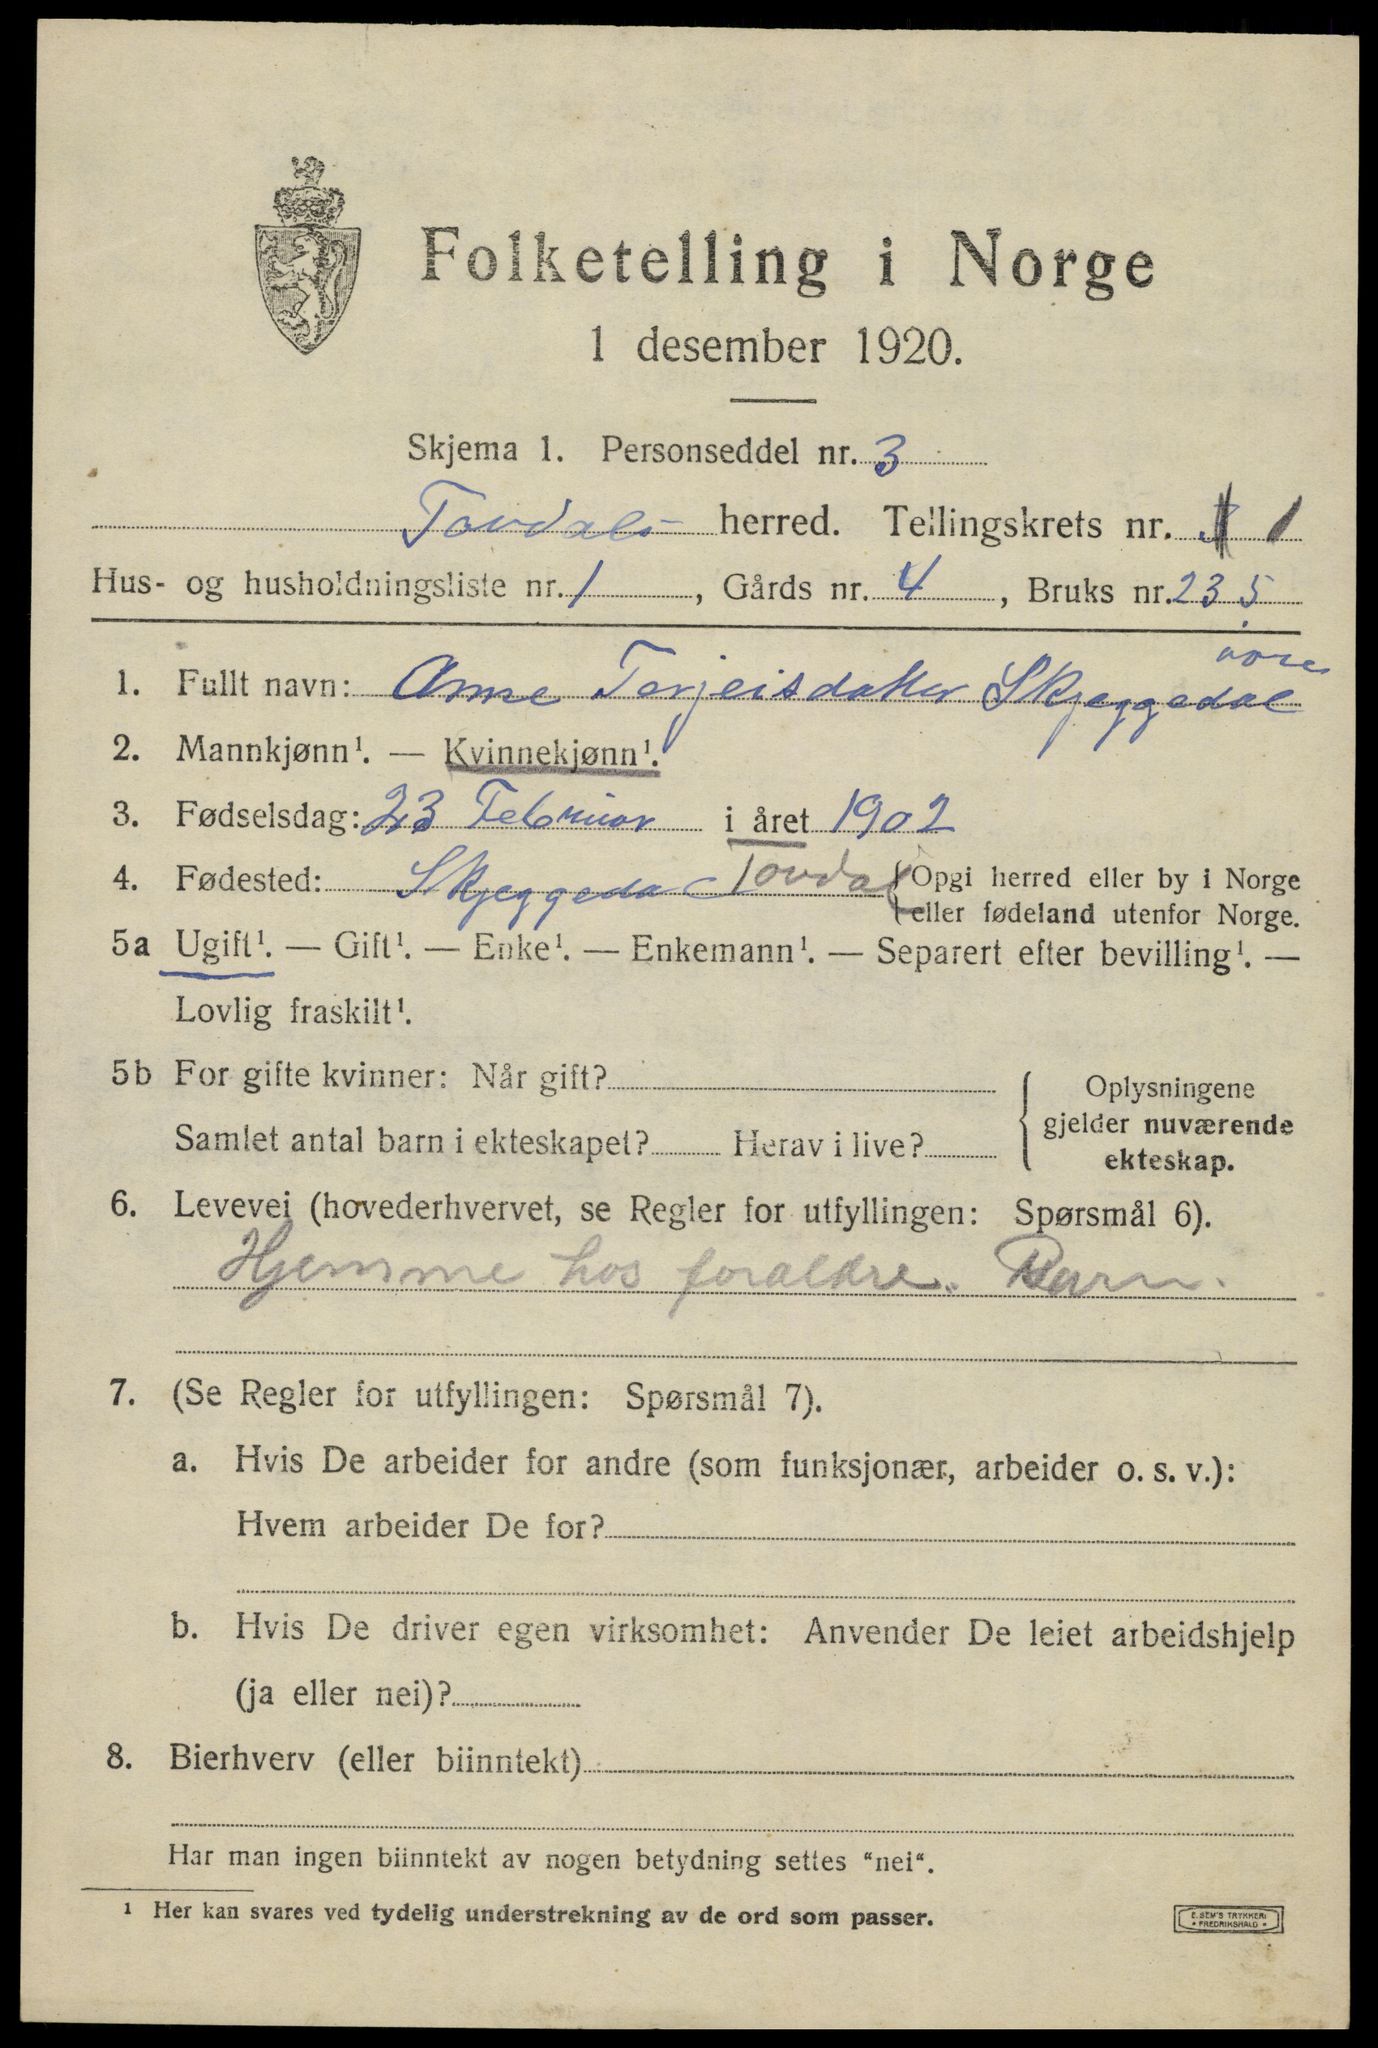 Folketelling i Norge
1 desember 1920.
Skjema 1. Personseddel nr. 3
Tovdals herred. Tellingskrets nr. 1
Hus- og husholdningsliste nr. 1, Gårds nr. 4, Bruks nr. 23 5
1. Fullt navn: Anne Terjeisdatter Skjeggedal
2. Mannkjønn¹. — Kvinnekjønn¹.
3. Fødselsdag: 23 Februar i året 1902
4. Fødested: Skjeggedal Tovdal {Opgi herred eller by i Norge
eller fødeland utenfor Norge.
5a Ugift¹. — Gift¹. — Enke¹. — Enkemann¹. — Separert efter bevilling¹. —
Lovlig fraskilt¹.
5b For gifte kvinner: Når gift?
Samlet antal barn i ekteskapet? Herav i live?
Oplysningene
gjelder nuværende
ekteskap.
6. Levevei (hovederhvervet, se Regler for utfyllingen: Spørsmål 6).
Hjemme hos foraldre. Barn.
7. (Se Regler for utfyllingen: Spørsmål 7).
a. Hvis De arbeider for andre (som funksjonær, arbeider o. s. v.):
Hvem arbeider De for?
b. Hvis De driver egen virksomhet: Anvender De leiet arbeidshjelp
(ja eller nei)?
8. Bierhverv (eller biinntekt)
Har man ingen biinntekt av nogen betydning settes "nei".
¹ Her kan svares ved tydelig understrekning av de ord som passer.
E. SEM'S TRYKKERI
FREDRIKSHALD